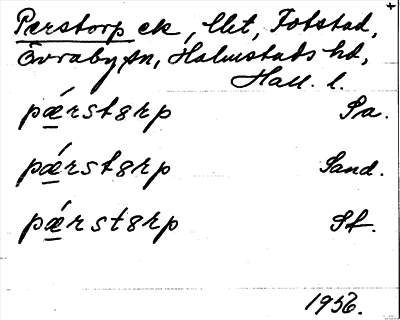 Perstorp ek, llt, Fotstad,
Övraby sn, Halmstads hd,
Hall. l.
pǽrstȣrp Sa.
pǽrstȣrp Sand.
pǽrstȣrp St.
1956.